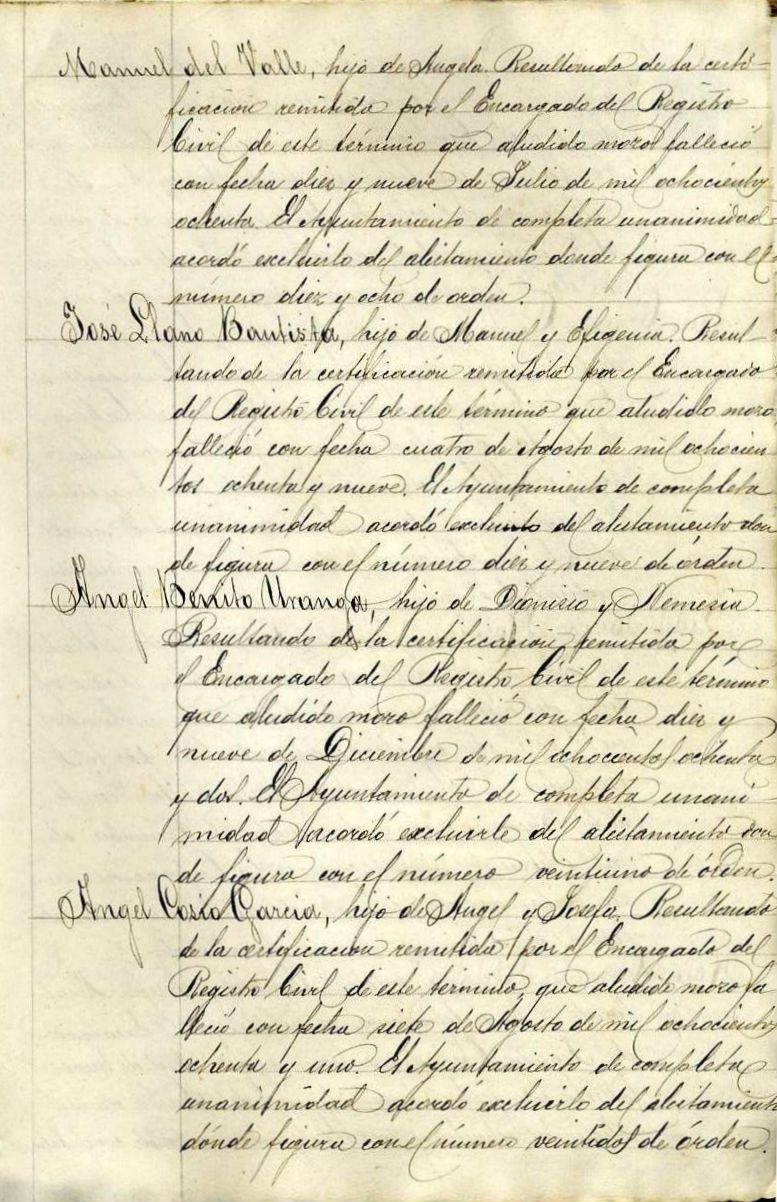 Manuel del Valle, hijo de Angela. Resultando de la certi-
ficación remitida por el Encargado del Registro
Civil de este término que aludido mozo falleció
con fecha diez y nueve de Julio de mil ochocientos
ochenta. El Ayuntamiento de completa unanimidad
acordó excluirlo del alistamiento donde figura con el
número diez y ocho de orden.
José Llano Bautista, hijo de Manuel y Efigenia. Resul-
tando de la certificación remitida por el Encargado
del Registro Civil de este término que aludido mozo
falleció con fecha cuatro de Agosto de mil ochocien
tos ochenta y nueve. El Ayuntamiento de completa
unanimidad acordó excluirlo del alistamiento don
de figura con el número diez y nueve de órden.
Angel Benito Uranga, hijo de Dionisio y Nemesia.
Resultando de la certificación remitida por
el Encargado del Registro Civil de este término
que aludido mozo falleció con fecha diez y
nueve de Diciembre de mil ochocientos ochenta
y dos. El Ayuntamiento de completa unani-
midad acordó excluirle del alistamiento don
de figura con el número veintiuno de órden.
Angel Cosio Garcia, hijo de Angel y Josefa. Resultando
de la certificación remitida por el Encargado del
Registro Civil de este termino, que aludido mozo fa
lleció con fecha siete de Agosto de mil ochocientos
ochenta y uno. El Ayuntamiento de completa
unanimidad acordó excluirlo del alistamiento
dónde figura con el número veintidos de órden.